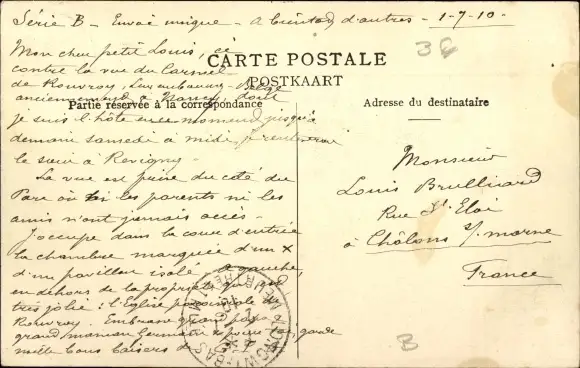 Série B - Envoi unique - A bientôt d'autres - 1-7-10.
Mon cher petit Louis, ci
CARTE POSTALE
contre la vue du Carmel
POSTKAART
de Rouvroy, Luxembourg Belge
anciennement à Nancy dont
Partie réservée à la correspondance
Adresse du destinataire
je suis l'hôte en ce moment jusqu'à
demain samedi à midi, je rentrerai
le soir à Revigny -
La vue est prise du côté du
Parc où les parents ni les
amis n'ont jamais accès -
J'occupe dans la cour d'entrée
la chambre marquée d'un X
d'un pavillon isolé. A gauche,
en dehors de la propriété qui est
très jolie : l'Eglise paroissiale de
Rouvroy. Embrasse grand papa
grand maman
mille bons baisers de
Monsieur
Louis Brullinard
Rue St Eloi
à Châlons s/ marne
France
36
B